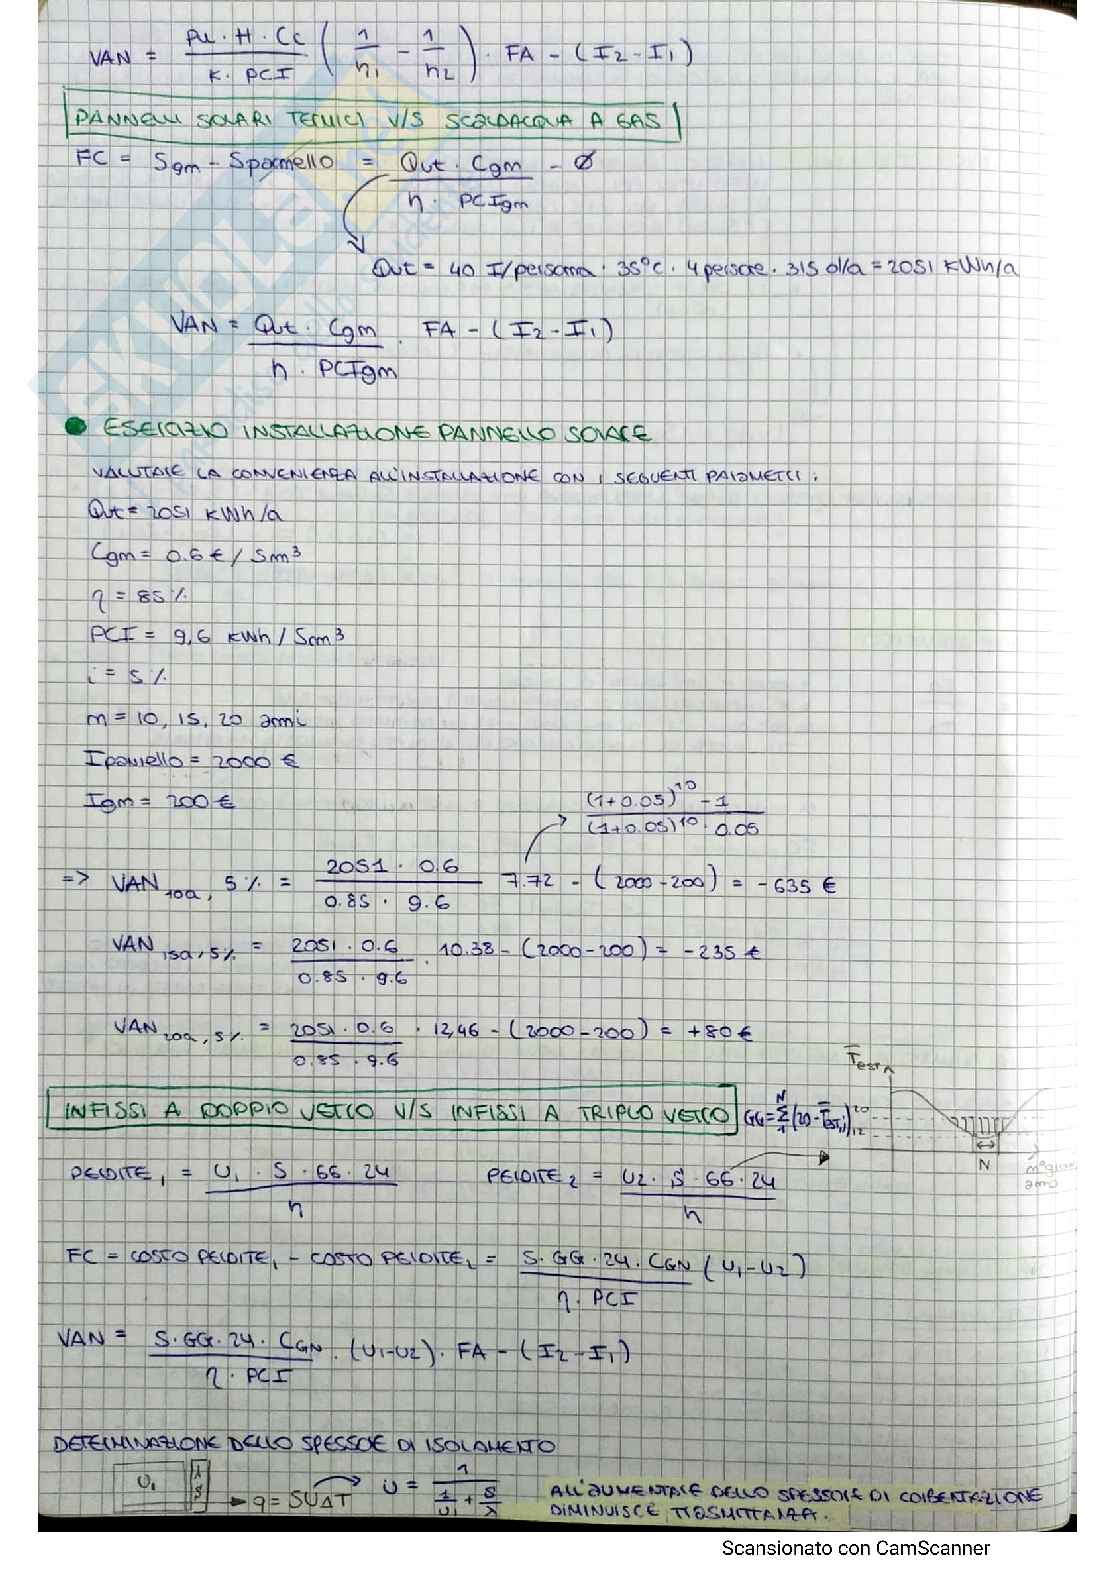 VAN = Pu · H · Cc / K · PCI ( 1/η1 - 1/η2 ) · FA - (I2 - I1)
PANNELLI SOLARI TERMICI V/S SCALDACQUA A GAS
FC = Sgm - Spannello = Qut · Cgm / η · PCIgm - Ø
Qut = 40 l/persona · 35°C · 4 persone · 315 d/a = 2051 kWh/a
VAN = Qut · Cgm / η · PCIgm · FA - (I2 - I1)
• ESERCIZIO INSTALLAZIONE PANNELLO SOLARE
VALUTARE LA CONVENIENZA ALL'INSTALLAZIONE CON I SEGUENTI PARAMETRI:
Qut = 2051 kWh/a
Cgm = 0.6 € / Sm³
η = 85%
PCI = 9,6 kWh / Sm³
i = 5%
m = 10, 15, 20 anni
Ipannello = 2000 €
Igm = 200 €
(1+0.05)^10 - 1 / (1+0.05)^10 · 0.05
=> VAN 10a, 5% = 2051 · 0.6 / 0.85 · 9.6 7.72 - (2000-200) = -635 €
VAN 15a, 5% = 2051 · 0.6 / 0.85 · 9.6 · 10.38 - (2000-200) = -235 €
VAN 20a, 5% = 2051 · 0.6 / 0.85 · 9.6 · 12,46 - (2000-200) = +80 €
Test
INFISSI A DOPPIO VETRO V/S INFISSI A TRIPLO VETRO GG = Σ (20 - Test,i) 20 12
N
PERDITE1 = U1 · S · GG · 24 / η PERDITE2 = U2 · S · GG · 24 / η
FC = COSTO PERDITE1 - COSTO PERDITE2 = S · GG · 24 · CGN / η · PCI (U1 - U2)
VAN = S · GG · 24 · CGN / η · PCI · (U1 - U2) · FA - (I2 - I1)
DETERMINAZIONE DELLO SPESSORE DI ISOLAMENTO
U1 λ S q = SUΔT U = 1 / 1/U1 + S/λ ALL'AUMENTARE DELLO SPESSORE DI COIBENTAZIONE
DIMINUISCE TRASMITTANZA.
Scansionato con CamScanner